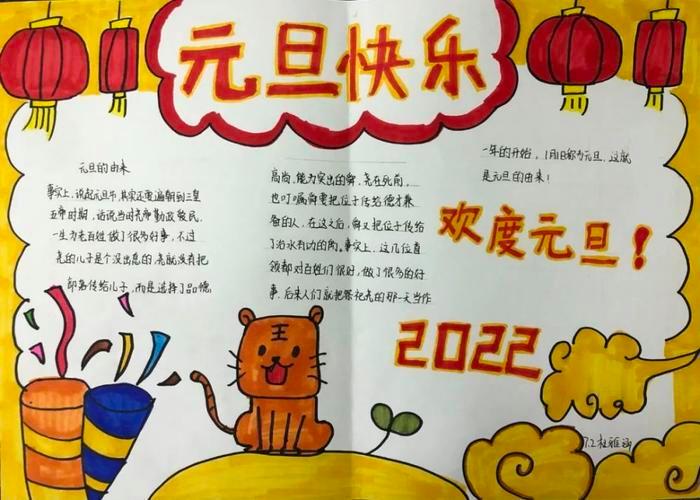 元旦快乐
元旦的由来
事实上,说起元旦节,其实还要追朔到三皇
五帝时期,话说当时尧帝勤政敬民,
一生为老百姓做了很多好事,不过
尧的儿子是个没出息的,尧就没有把
部落传给儿子,而是选择了品德
高尚,能力突出的舜,尧在死前,
也叮嘱舜要把位子传给德才兼
备的人,在这之后,舜又把位子传给
了治水有功的禹。事实上,这几位首
领都对百姓们很好,做了很多的好
事,后来人们就把祭祀尧的那一天当作
一年的开始,1月1日称为元旦,这就
是元旦的由来!
欢度元旦!
2022
王
7.2杜雅涵